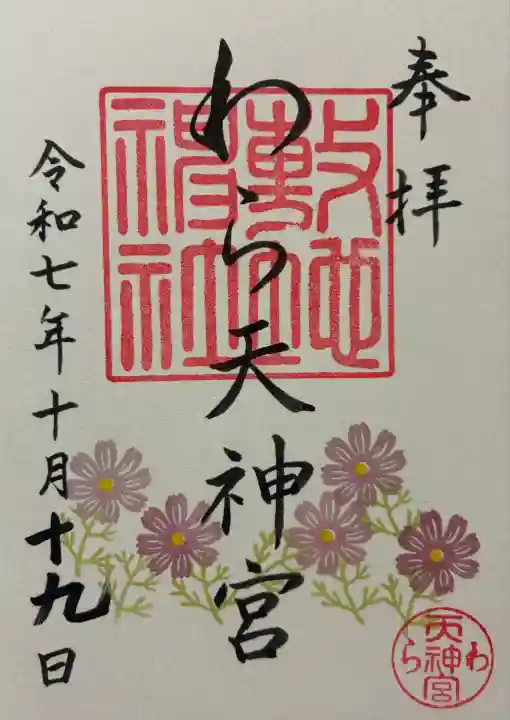 奉拝
わら天神宮
令和七年十月十九日
敷地神社
わら天神宮